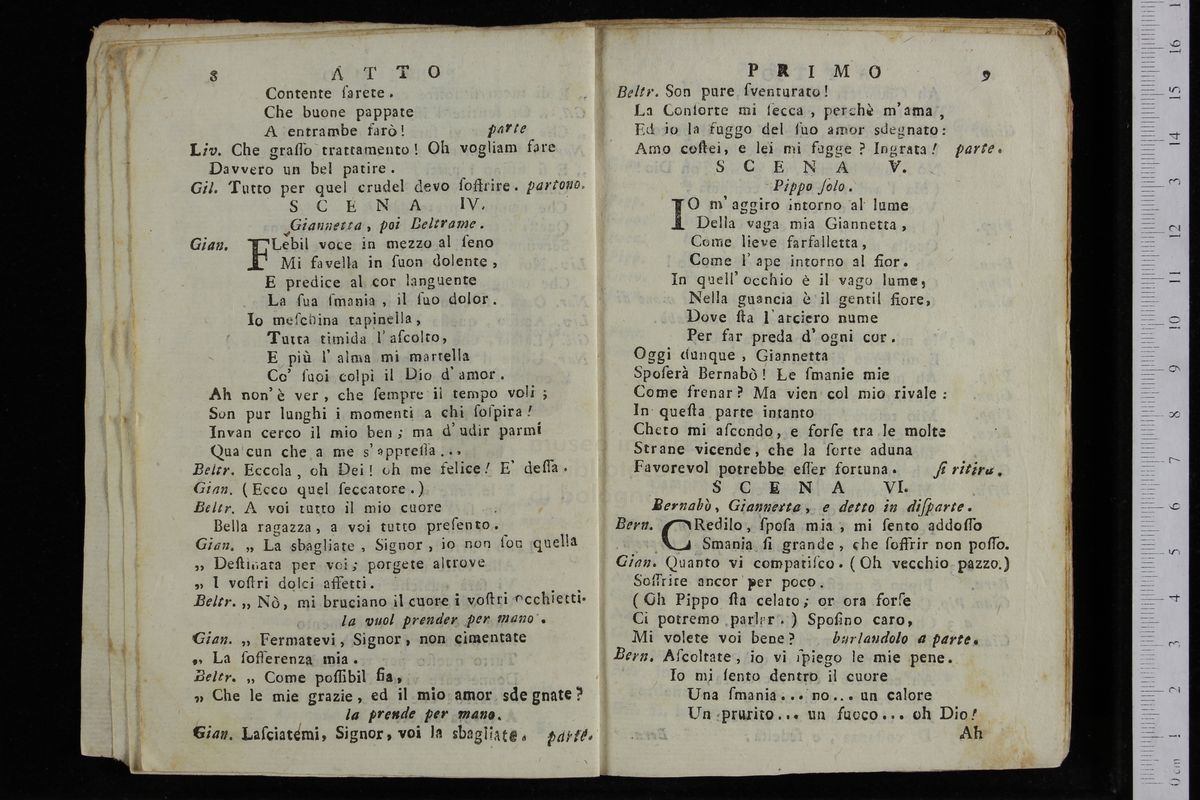 8 ATTO
Contente ſarete.
Che buone pappate
A entrambe farò! parte
Liv. Che graſſo trattamento! Oh vogliam fare
Davvero un bel patire.
Gil. Tutto per quel crudel devo ſoffrire. partono.
SCENA IV.
Giannetta, poi Beltrame.
Gian. FLebil voce in mezzo al ſeno
Mi favella in ſuon dolente,
E predice al cor languente
La ſua ſmania, il ſuo dolor.
Io meſchina tapinella,
Tutta timida l'aſcolto,
E più l'alma mi martella
Co' ſuoi colpi il Dio d'amor.
Ah non'è ver, che ſempre il tempo voli;
Son pur lunghi i momenti a chi ſoſpira!
Invan cerco il mio ben; ma d'udir parmi
Qua cun che a me s'appreſſa...
Beltr. Eccola, oh Dei! oh me felice! E' deſſa.
Gian. (Ecco quel ſeccatore.)
Beltr. A voi tutto il mio cuore
Bella ragazza, a voi tutto preſento.
Gian. „ La sbagliate, Signor, io non ſon quella
„ Deſtinata per voi; porgete altrove
„ I voſtri dolci affetti.
Beltr. „ Nò, mi bruciano il cuore i voſtri occhietti.
la vuol prender per mano.
Gian. „ Fermatevi, Signor, non cimentate
„ La ſofferenza mia.
Beltr. „ Come poſſibil ſia,
„ Che le mie grazie, ed il mio amor sdegnate?
la prende per mano.
Gian. Laſciatemi, Signor, voi la sbagliate. parte.
PRIMO 9
Beltr. Son pure ſventurato!
La Conſorte mi ſecca, perchè m'ama,
Ed io la fuggo del ſuo amor sdegnato:
Amo coſtei, e lei mi fugge? Ingrata! parte.
SCENA V.
Pippo ſolo.
IO m'aggiro intorno al lume
Della vaga mia Giannetta,
Come lieve farfalletta,
Come l'ape intorno al fior.
In quell'occhio è il vago lume,
Nella guancia è il gentil fiore,
Dove ſta l'arciero nume
Per far preda d'ogni cor.
Oggi dunque, Giannetta
Spoſerà Bernabò! Le ſmanie mie
Come frenar? Ma vien col mio rivale:
In queſta parte intanto
Cheto mi aſcondo, e forſe tra le molte
Strane vicende, che la ſorte aduna
Favorevol potrebbe eſſer fortuna. ſi ritira.
SCENA VI.
Bernabò, Giannetta, e detto in diſparte.
Bern. CRedilo, ſpoſa mia, mi ſento addoſſo
Smania ſi grande, che ſoffrir non poſſo.
Gian. Quanto vi compatiſco. (Oh vecchio pazzo.)
Soffrite ancor per poco.
(Oh Pippo ſta celato; or ora forſe
Ci potremo parlar.) Spoſino caro,
Mi volete voi bene? burlandolo a parte.
Bern. Aſcoltate, io vi ſpiego le mie pene.
Io mi ſento dentro il cuore
Una ſmania... no... un calore
Un prurito... un fuoco... oh Dio!
Ah